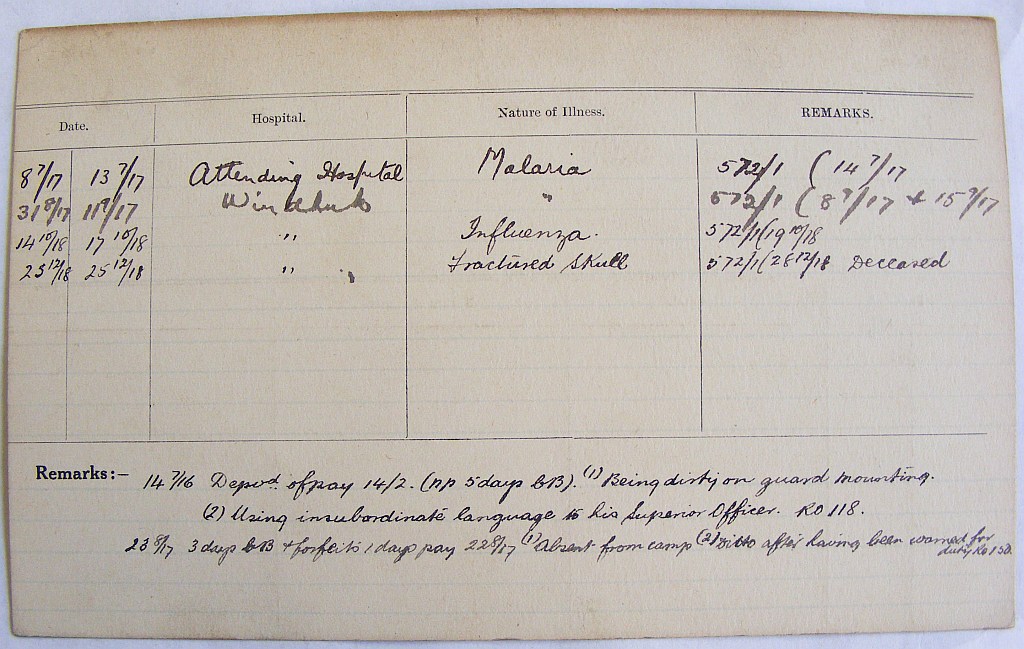 Date. Hospital. Nature of Illness. REMARKS.
8 7/17 13 7/17 Attending Hospital Malaria 572/1 (14 7/17
31 8/17 11 9/17 Windhuk " 572/1 (8 9/17 + 15 9/17
14 10/18 17 10/18 " Influenza. 572/1 (19 10/18
23 12/18 25 12/18 " " Fractured Skull 572/1 (28 12/18 Deceased
Remarks:- 14 7/16 Depvd. of pay 14/2. (np 5 days CB). (1) Being dirty on guard mounting.
(2) Using insubordinate language to his Superior Officer. RO 118.
23 8/17 3 days CB + forfeits 1 days pay 22 8/17 (1) Absent from camp (2) Ditto after having been warned for
duty Ro 150.